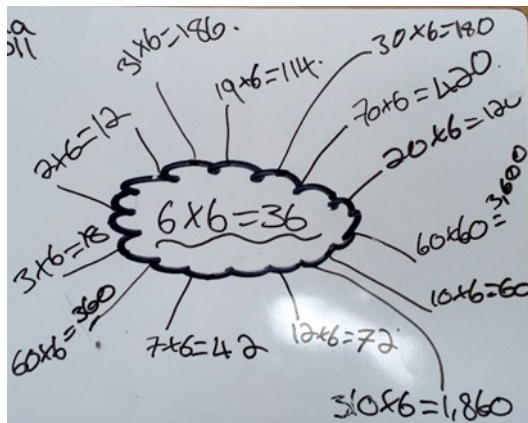 31×6=186.
19×6=114.
30×6=180
70×6=420.
20×6=120
60×60=3,600
10×6=60
310×6=1,860
12×6=72
7×6=42
60×6=360
3×6=18
2×6=12
6×6=36